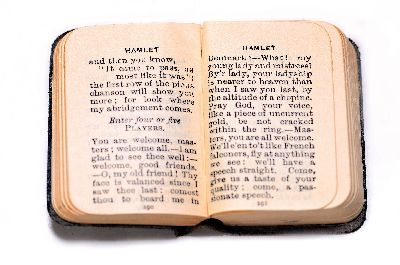 HAMLET
and then you know,
"It came to pass, as
most like it was";
the first row of the pious
chanson will show you
more; for look where
my abridgement comes.
Enter four or five
PLAYERS.
You are welcome, mas-
ters; welcome all.—I am
glad to see thee well:—
welcome, good friends.
—O, my old friend! Thy
face is valanced since I
saw thee last: comest
thou to beard me in
HAMLET
Denmark?—What! my
young lady and mistress!
By'r lady, your ladyship
is nearer to heaven than
when I saw you last, by
the altitude of a chopine.
Pray God, your voice,
like a piece of uncurrent
gold, be not cracked
within the ring.—Mas-
ters, you are all welcome.
We'll e'en to't like French
falconers, fly at anything
we see: we'll have a
speech straight. Come,
give us a taste of your
quality: come, a pas-
sionate speech.